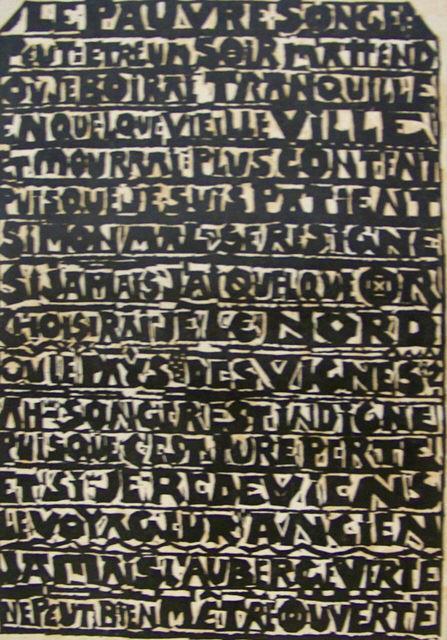 LE PAUVRE SONGE:
PEUT-ETRE UN SOIR M'ATTEND
OU JE BOIRAI TRANQUILLE
EN QUELQUE VIEILLE VILLE
ET MOURRAI PLUS CONTENT
PUISQUE JE SUIS PATIENT
SI MON MAL SE RESIGNE
SI JAMAIS J'AI QUELQUE OR
CHOISIRAI JE LE NORD
OU LE PAYS DES VIGNES
AH-SONGER EST INDIGNE
PUISQUE C'EST PURE PERTE
ET SI JE REDEVIENS
LE VOYAGEUR ANCIEN
JAMAIS L'AUBERGE VERTE
NE PEUT BIEN M'ETRE OUVERTE